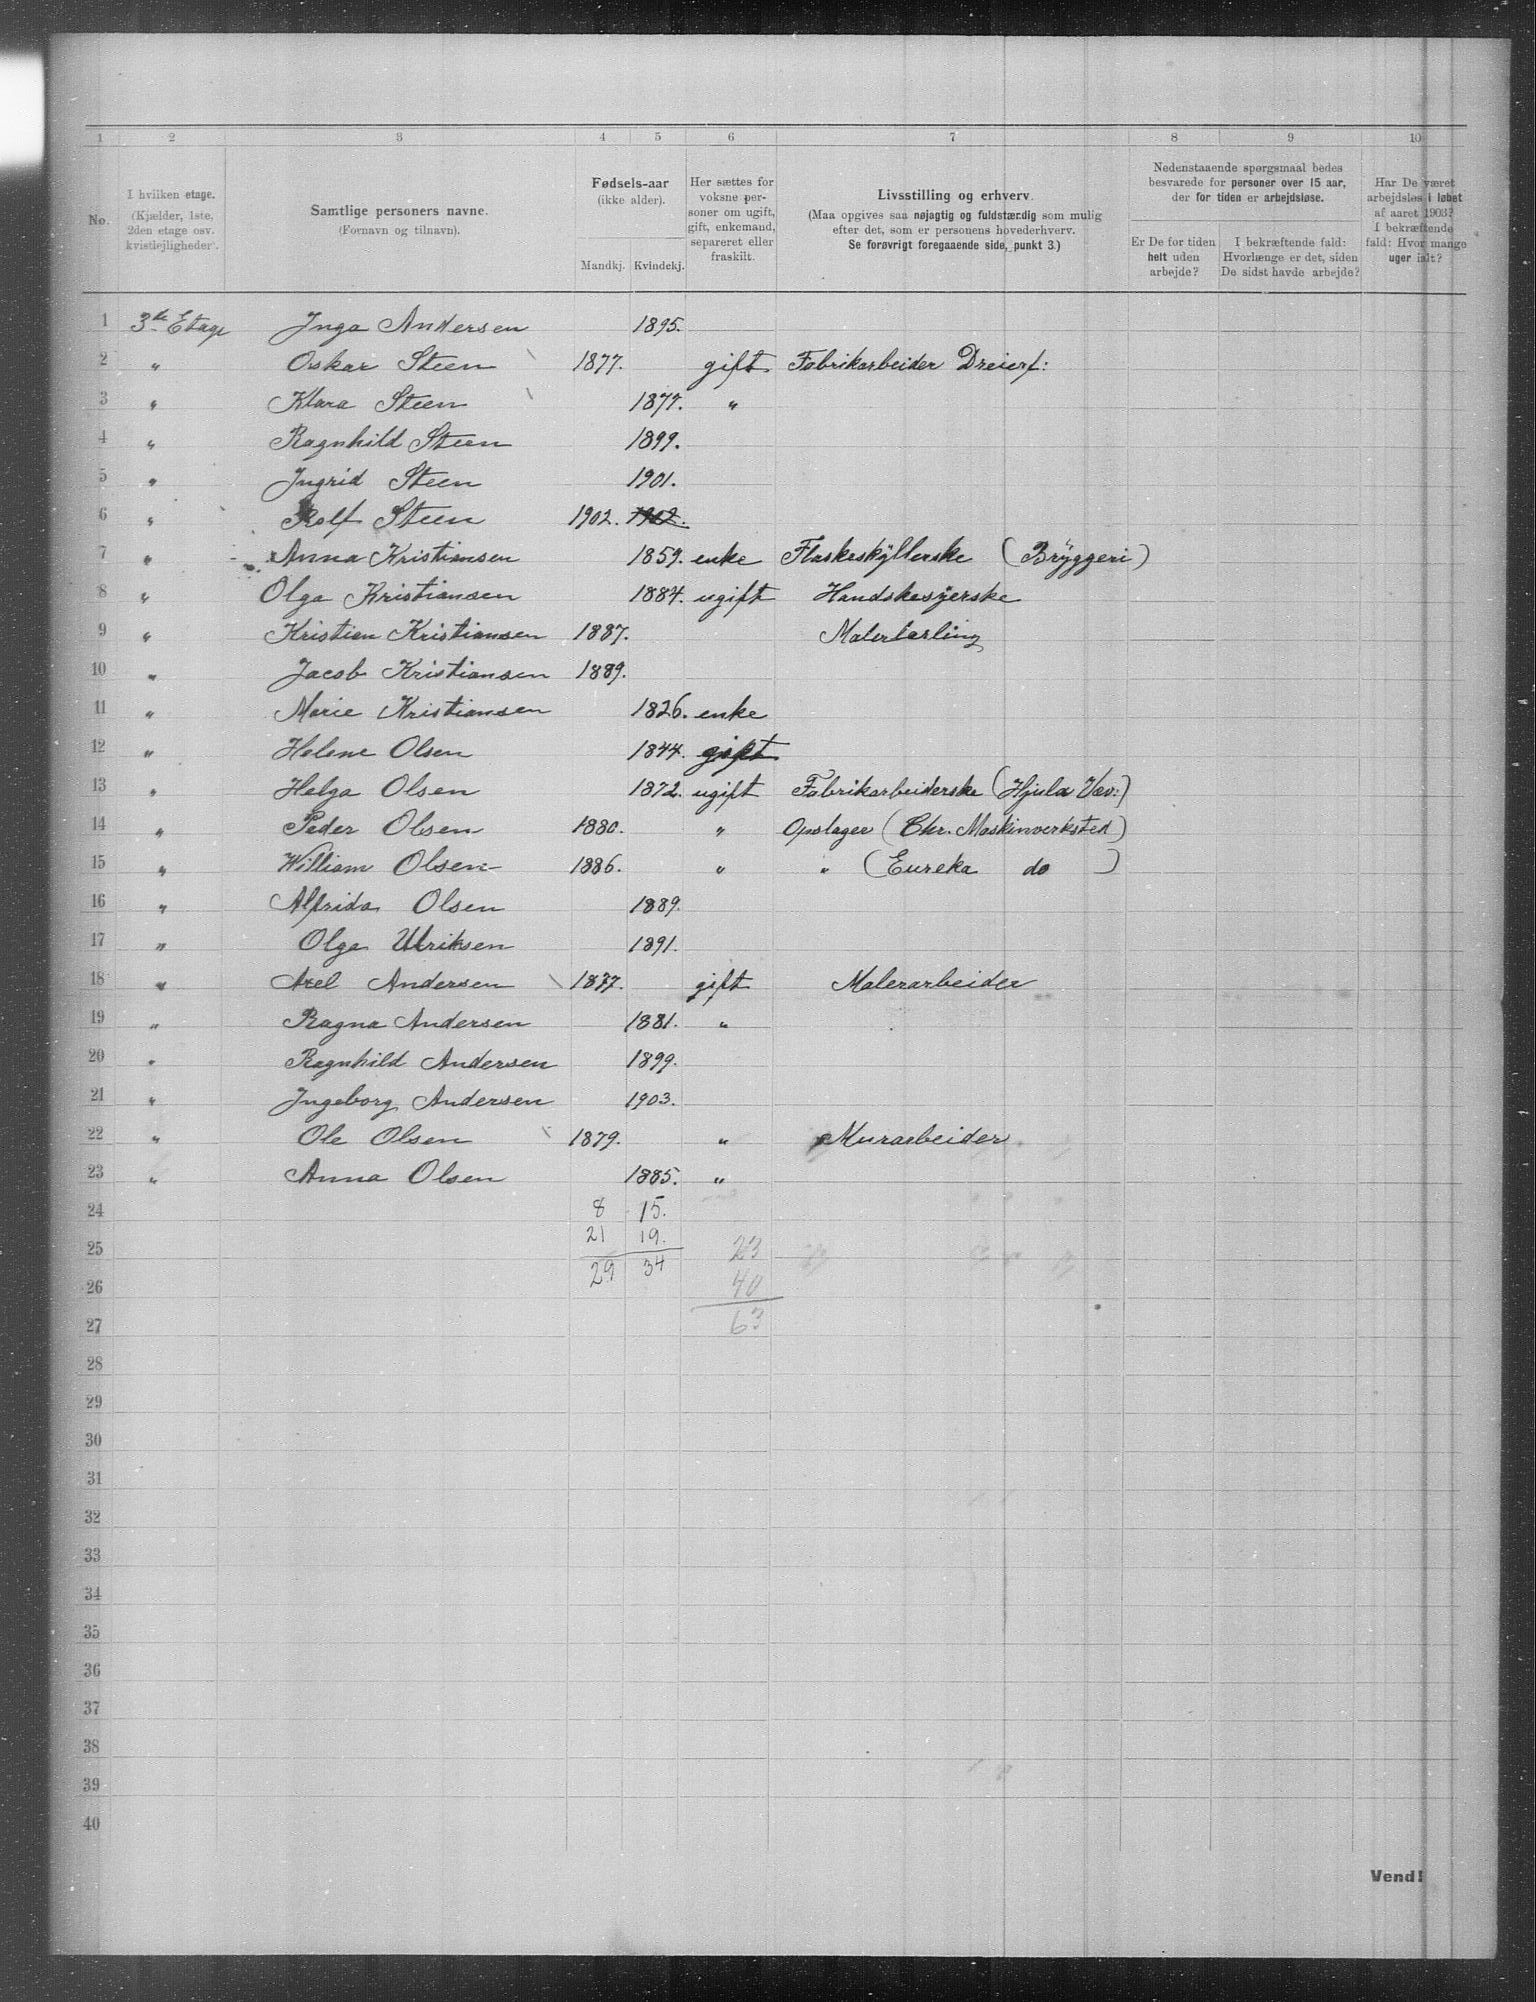 1 2 3 4 5 6 7 8 9 10
No.
I hvilken etage.
(Kjælder, 1ste,
2den etage osv.
kvistlejligheder.
Samtlige personers navne.
(Fornavn og tilnavn).
Fødsels-aar
(ikke alder).
Mandkj. Kvindekj.
Her sættes for
voksne per-
soner om ugift,
gift, enkemand,
separeret eller
fraskilt.
Livsstilling og erhverv.
(Maa opgives saa nøjagtig og fuldstærdig som mulig
efter det, som er personens hovederhverv.
Se forøvrigt foregaaende side, punkt 3.)
Nedenstaaende spørgsmaal bedes
besvarede for personer over 15 aar,
der for tiden er arbejdsløse.
Er De for tiden
helt uden
arbejde?
I bekræftende fald:
Hvorlænge er det, siden
De sidst havde arbejde?
Har De været
arbejdsløs i løbet
af aaret 1903?
I bekræftende
fald: Hvor mange
uger ialt?
1 3de Etage Inga Andersen 1895.
2 " Oskar Steen 1877. gift Fabrikarbeider Dreierf:
3 " Klara Steen 1877. "
4 " Ragnhild Steen 1899.
5 " Ingrid Steen 1901.
6 " Rolf Steen 1902. 1902.
7 " Anna Kristiansen 1859. enke Flaskeskyllerske (Bryggeri)
8 " Olga Kristiansen 1884. ugift Handskesyerske
9 " Kristian Kristiansen 1887. Malerlærling
10 " Jacob Kristiansen 1889.
11 " Marie Kristiansen 1826. enke
12 " Helene Olsen 1844. gift
13 " Helga Olsen 1872. ugift Fabrikarbeiderske (Hjula Væv:)
14 " Peder Olsen 1880. " Opslager (Chr. Maskinverksted)
15 " William Olsen 1886. " " (Eureka do )
16 " Alfrida Olsen 1889.
17 " Olga Ulriksen 1891.
18 " Axel Andersen 1877. gift Malerarbeider
19 " Ragna Andersen 1881. "
20 " Ragnhild Andersen 1899.
21 " Ingeborg Andersen 1903.
22 " Ole Olsen 1879. " Murarbeider
23 " Anna Olsen 1885. "
24 8 15.
21 19.
25 29 34 23
26 40
27 63
28
29
30
31
32
33
34
35
36
37
38
39
40
Vend!